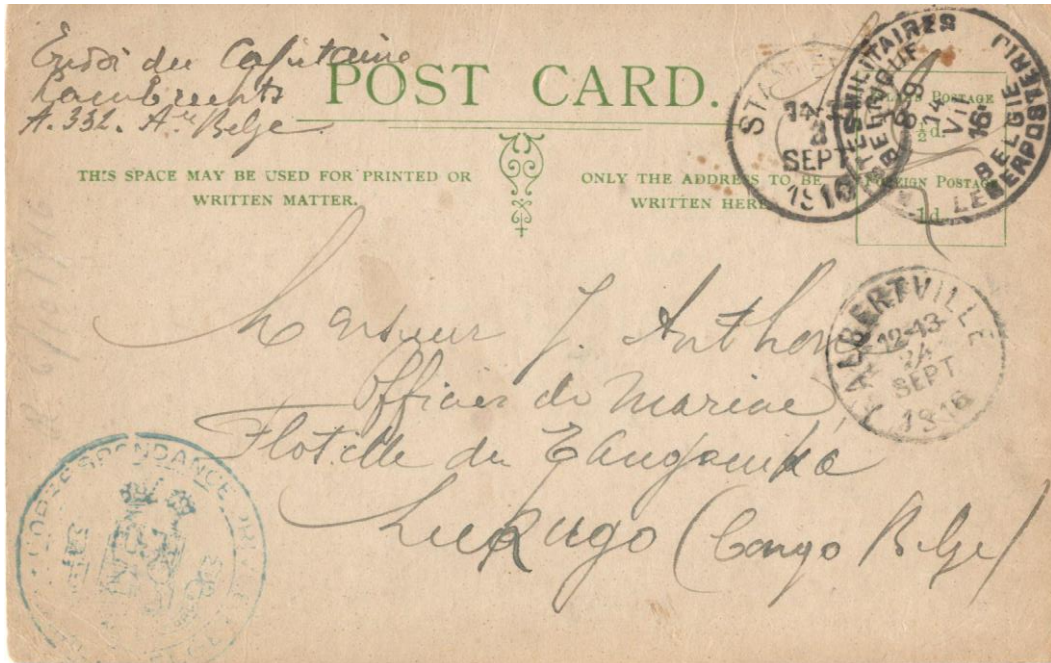 Envoi du Capitaine
Lambrechts
A. 332. Aée Belge
POST CARD.
THIS SPACE MAY BE USED FOR PRINTED OR
WRITTEN MATTER.
ONLY THE ADDRESS TO BE
WRITTEN HERE
POSTAGE
½d.
FOREIGN POSTAGE
1d.
POSTES MILITAIRES
BELGIQUE
8-9
14
VII
16
BELGIE
LEGERPOSTERIJ
SEPT
1916
ALBERTVILLE
12-13
24
SEPT
1916
Monsieur J. Anthoni
Officier de Marine
Flotille du Tanganika
Lukugo (Congo Belge)
CORRESPONDANCE PRIVEE